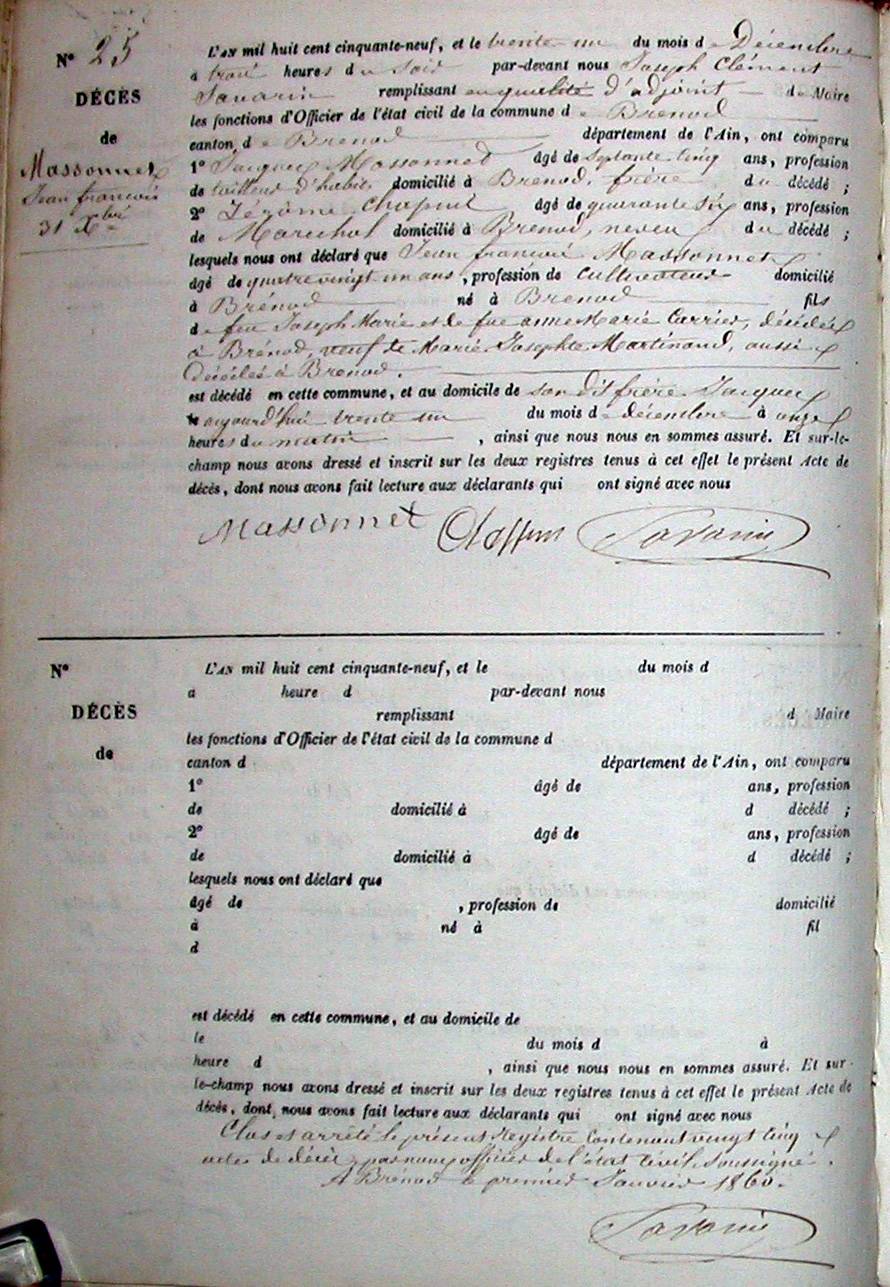 N° 25
DÉCÈS
de
Massonnet
Jean francois
31 Xbre
L'AN mil huit cent cinquante-neuf, et le trente un du mois de Décembre
à trois heures du soir par-devant nous Joseph Clément
Savarin remplissant en qualité d'adjoint de Maire
les fonctions d'Officier de l'état civil de la commune de Brenod
canton de Brenod département de l'Ain, ont comparu
1° Jacques Massonnet âgé de septante cinq ans, profession
de tailleur d'habit, domicilié à Brenod, frère du décédé ;
2° Jérôme Chapuis âgé de quarante six ans, profession
de Marechal domicilié à Brenod, neveu du décédé ;
lesquels nous ont déclaré que Jean francois Massonnet
âgé de quatre vingt un ans, profession de cultivateur domicilié
à Brénod né à Brenod fils
de feu Joseph Marie et de fue anne Marie Carrier, décédés
à Brénod, veuf de Marie Josephte Martinand, aussi
décédée à Brenod.
est décédé en cette commune, et au domicile de son dit frère Jacques
le aujourd'hui trente un du mois de décembre à onze
heures du matin , ainsi que nous nous en sommes assuré. Et sur-le-
champ nous avons dressé et inscrit sur les deux registres tenus à cet effet le présent Acte de
décès, dont nous avons fait lecture aux déclarants qui ont signé avec nous
Massonnet Savarin
N°
DÉCÈS
de
L'AN mil huit cent cinquante-neuf, et le du mois d
à heure d par-devant nous
remplissant d Maire
les fonctions d'Officier de l'état civil de la commune d
canton d département de l'Ain, ont comparu
1° âgé de ans, profession
de domicilié à d décédé ;
2° âgé de ans, profession
de domicilié à d décédé ;
lesquels nous ont déclaré que
âgé de , profession de domicilié
à né à fil
d
est décédé en cette commune, et au domicile de
le du mois d à
heure d , ainsi que nous nous en sommes assuré. Et sur-
le-champ nous avons dressé et inscrit sur les deux registres tenus à cet effet le présent Acte de
décès, dont nous avons fait lecture aux déclarants qui ont signé avec nous
Clos et arrêté le présent Registre contenant vingt cinq
actes de décès, par nous officier de l'état civil soussigné.
A Brénod le premier Janvier 1860.
Savarin